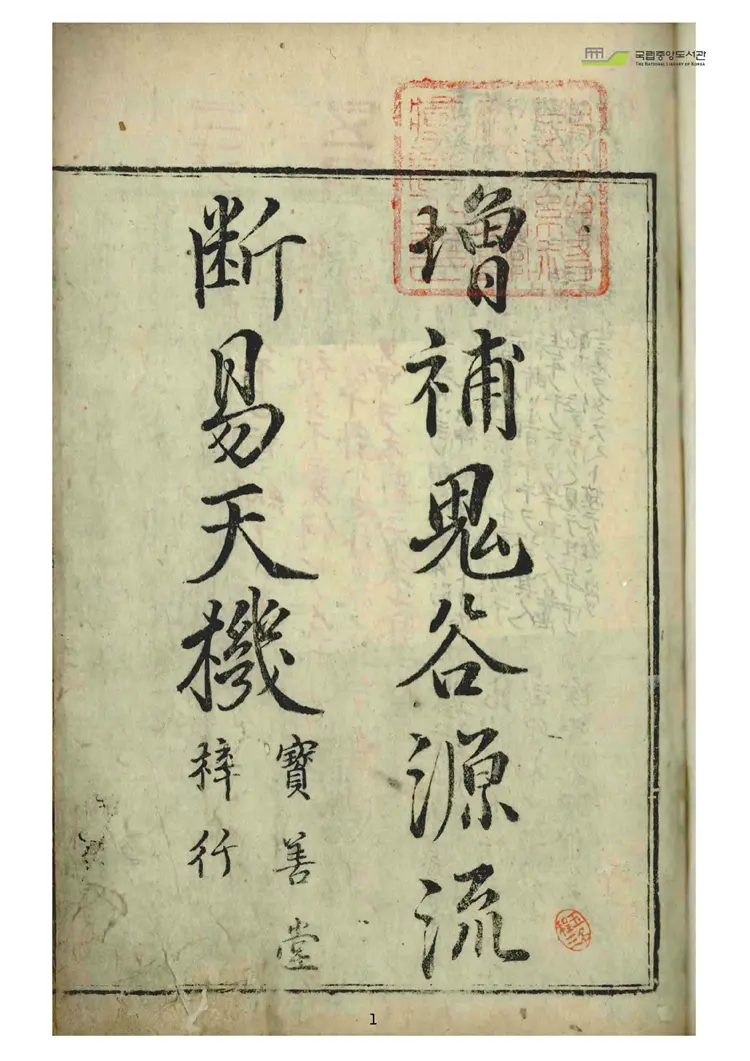 국립중앙도서관
THE NATIONAL LIBRARY OF KOREA
增補鬼谷源流
断易天機
寶善堂
梓行
1